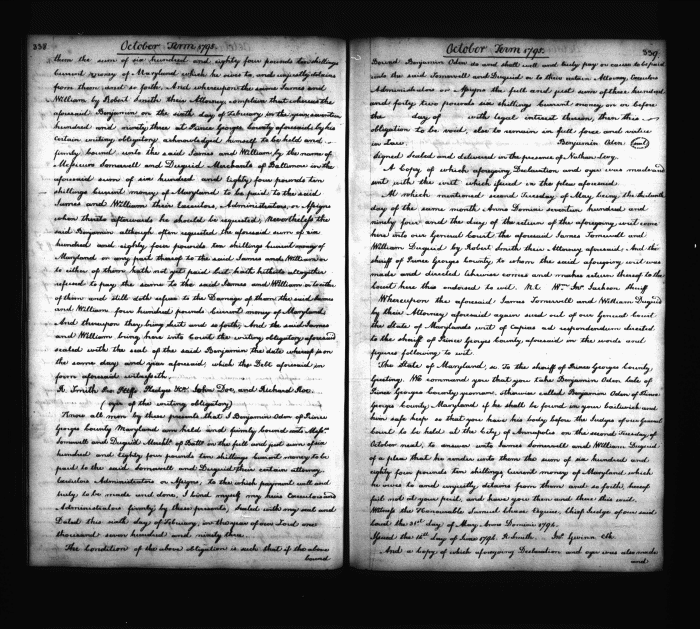 338
October Term 1795.
them the sum of six hundred and eighty four pounds ten shillings
current money of Maryland which he owes to and unjustly detains
from them and so forth. And whereupon the same James and
William by Robert Smith their Attorney complain that whereas the
aforesaid Benjamin on the sixth day of February in the year seventeen
hundred and ninety three at Prince Georges County aforesaid by his
certain writing obligatory acknowledged himself to be held and
firmly bound unto the said James and William by the name of
Messieurs Somervell and Duguid Merchants of Baltimore in the
aforesaid sum of six hundred and eighty four pounds ten
shillings current money of Maryland to be paid to the said
James and William their Executors, Administrators, or Assigns
when thereto afterwards he should be requested, Nevertheless the
said Benjamin although often requested the aforesaid sum of six
hundred and eighty four pounds ten shillings current money of
Maryland or any part thereof to the said James and William or
to either of them hath not yet paid but hath hitherto altogether
refused to pay the same to the said James and William or to either
of them and still doth refuse to the Damage of them the said James
and William four hundred pounds current money of Maryland
And thereupon they bring suit and so forth, And the said James
and William bring here into Court the writing obligatory aforesaid
sealed with the seal of the said Benjamin the date whereof is on
the same day and year aforesaid, which the Debt aforesaid in
form aforesaid witnesseth
R. Smith Pro Plffs Pledges &c. John Doe, and Richard Roe.
(copy of the writing obligatory)
Know all men by these presents that I Benjamin Oden of Prince
Georges County Maryland am held and firmly bound unto Messrs.
Somervell and Duguid Merchts. of Balto in the full and just sum of six
hundred and eighty four pounds ten shillings current money to be
paid to the said Somervell and Duguid their certain attorney
Executors Administrators or Assigns, to the which payment well and
truly to be made and done, I bind myself my heirs Executors and
Administrators firmly by these presents, sealed with my seal and
Dated this sixth day of February, in the year of our Lord one
thousand seven hundred and ninety three.
The Condition of the above Obligation is such that if the above
bound
339
October Term 1795.
Bound Benjamin Oden do and shall well and truly pay or cause to be paid
unto the said Somervell and Duguid or to their certain Attorney, Executors
Administrators or Assigns the full and just sum of three hundred
and forty two pounds six shillings Current money on or before
the day of with legal interest thereon, then this
obligation to be void, else to remain in full force and virtue
in Law. Benjamin Oden (seal)
Signed Sealed and delivered in the presence of Nathan Levy.
A Copy of which aforegoing Declaration and was made and
sent with the writ which issued in the plea aforesaid.
At which mentioned second Tuesday of May being the thirteenth
day of the same month Anno Domini seventeen hundred and
ninety four and the day of the return of the aforegoing writ come
here into our General Court the aforesaid James Somervell and
William Duguid by Robert Smith their Attorney aforesaid. And the
sheriff of Prince Georges County to whom the said aforegoing writ was
made and directed likewise comes and makes return thereof to the
Court here thus endorsed to wit. N. E. Wm. Jno. Jackson Sheriff
Whereupon the aforesaid James Somervell and William Duguid
by their Attorney aforesaid again sued out of our General Court
the State of Marylands writ of Capias ad respondendum directed
to the sheriff of Prince Georges County, aforesaid in the words and
figures following to wit.
The State of Maryland, sc. To the sheriff of Prince Georges County
Greeting. We command you that you take Benjamin Oden late of
Prince Georges County yeoman, otherwise called Benjamin Oden of Prince
Georges County Maryland if he shall be found in your bailiwick and
him safe keep so that you have his body before the Judges of our General
Court to be held at the City of Annapolis on the second Tuesday of
October next, to answer unto James Somervell and William Duguid
of a plea that he render unto them the sum of six hundred and
eighty four pounds ten shillings, current money of Maryland which
he owes to and unjustly detains from them and so forth, hereof
fail not at your peril, and have you then and there this writ.
Witness the Honourable Samuel Chase Esquire, Chief Judge of our said
Court the 31st day of May Anno Domini 1794.
Issued the 16th day of June 1794. R. Smith. Jno. Gwinn Clk.
And a copy of which aforegoing Declaration and was also made
and